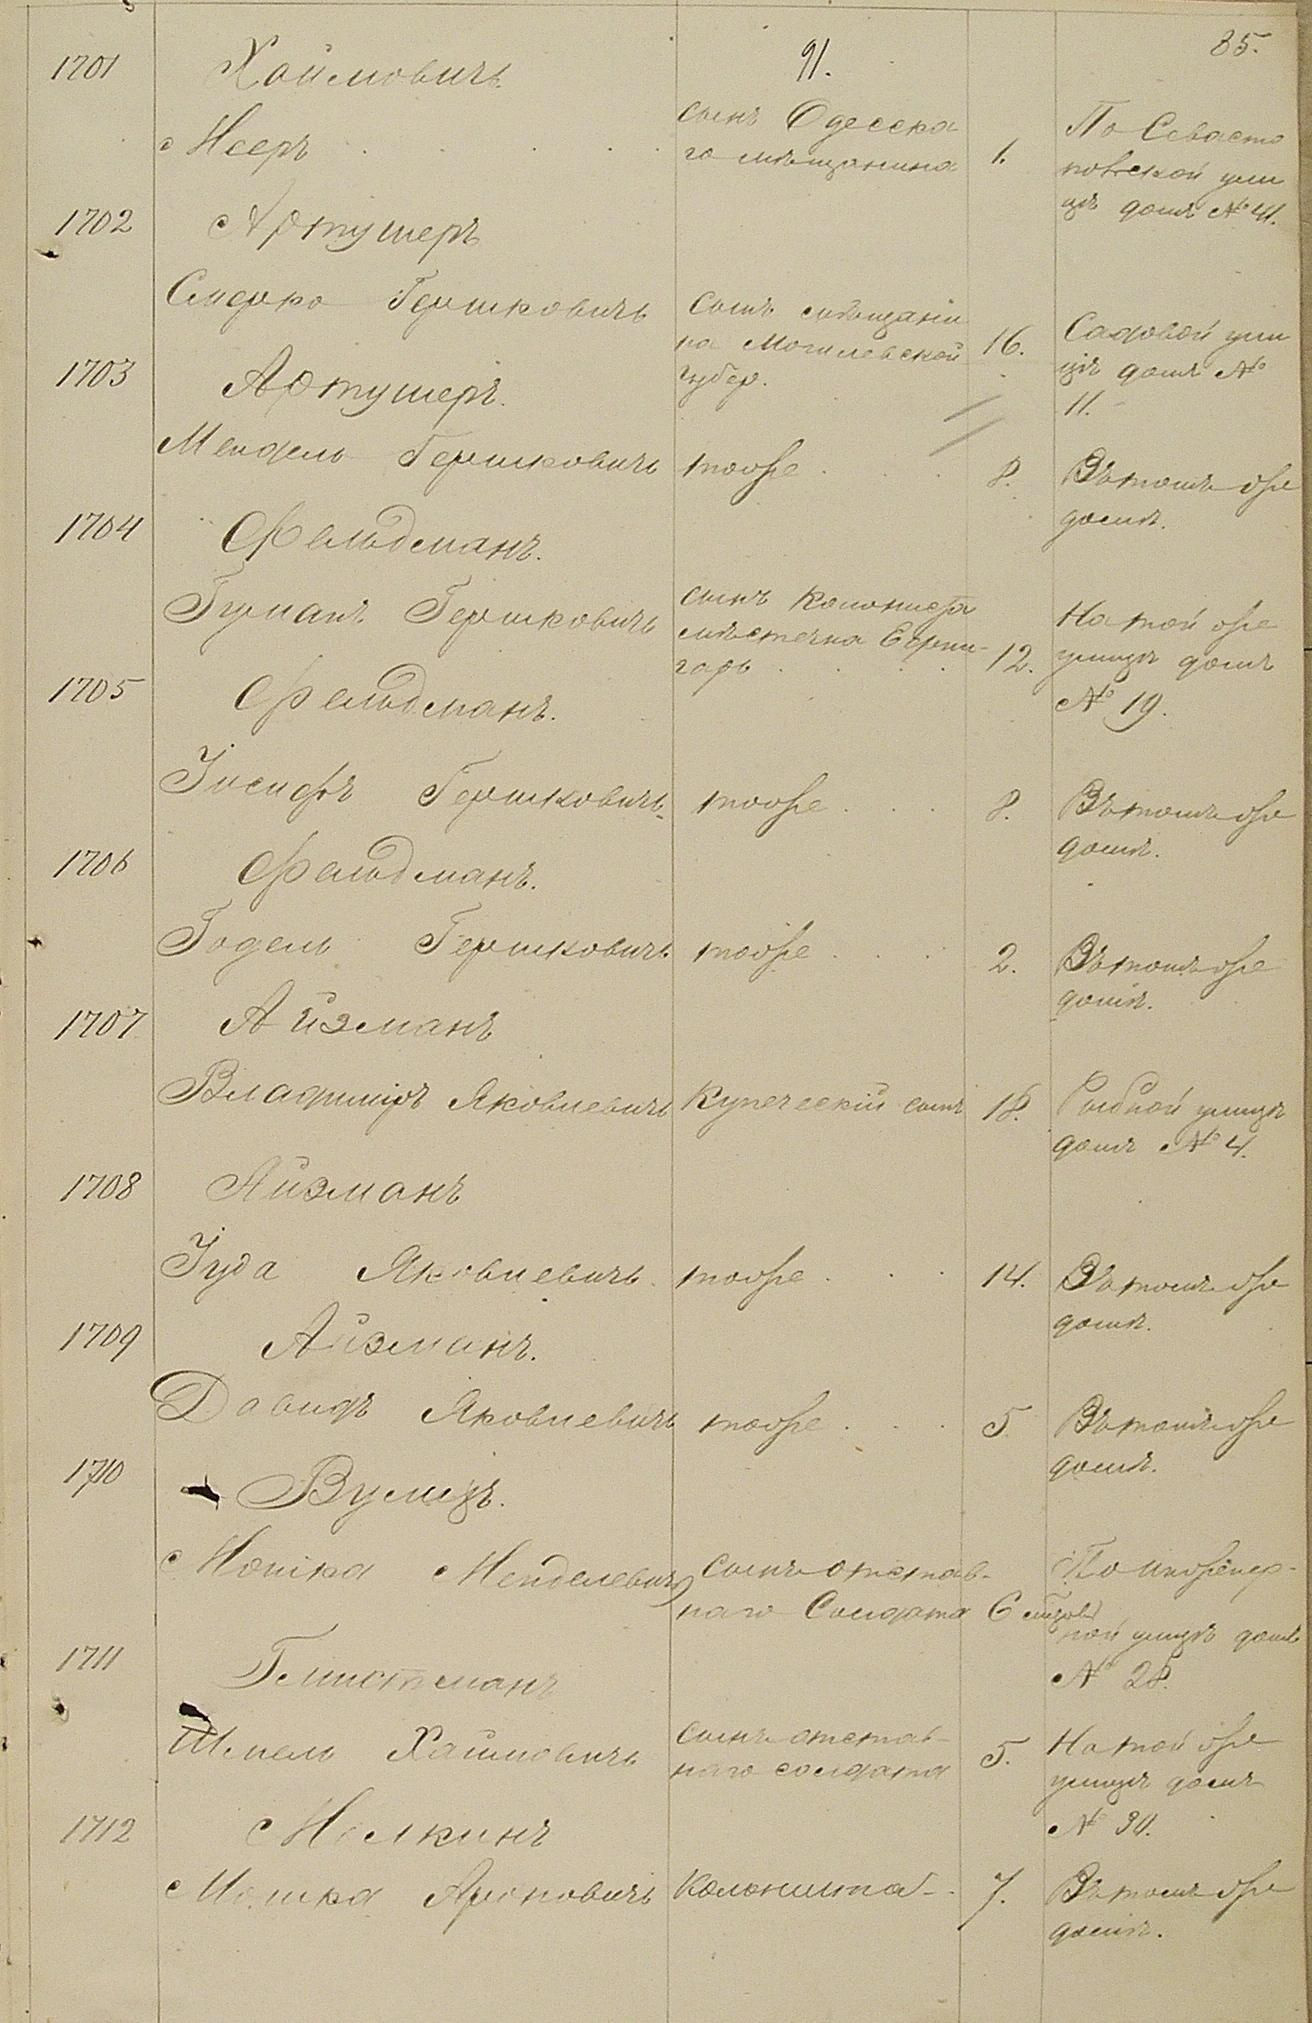 91.
85.
1701
Хаймовичъ
Мееръ
сынъ Одесска
го мѣщанина
1.
По Севасто
польской ули
цѣ домъ № 41.
1702
Артушеръ
Сидеръ Гершковичъ
Сынъ мѣщани
на Могилевской
губер.
16.
Садовой ули
цѣ домъ №
11.
1703
Артушеръ.
Мендель Гершковичъ
тоже
8.
Въ томъ же
домѣ.
1704
Фельдманъ.
Германъ Гершковичъ
сынъ колониста
мѣстечка
12.
На той же
улицѣ домъ
№ 19.
1705
Фельдманъ.
Іосифъ Гершковичъ
тоже
8.
Въ томъ же
домѣ.
1706
Фельдманъ.
Годель Гершковичъ
тоже
2.
Въ томъ же
домѣ.
1707
Айзманъ
Владиміръ Яковлевичъ
Купеческій сынъ
18.
Рыбной улицѣ
домъ № 4.
1708
Айзманъ
Іуда Яковлевичъ
тоже
14.
Въ томъ же
домѣ.
1709
Айзманъ.
Давидъ Яковлевичъ
тоже
5
Въ томъ же
домѣ.
1710
Мошка Менделевичъ
Сынъ отстав-
наго Солдата
6
По инженер-
ной улицѣ домъ
№ 28.
1711
Хаимовичъ
Сынъ отстав-
наго солдата
5.
На той же
улицѣ домъ
№ 30.
1712
Малкинъ
Мошка Ароновичъ
Колониста
7.
Въ томъ же
домѣ.